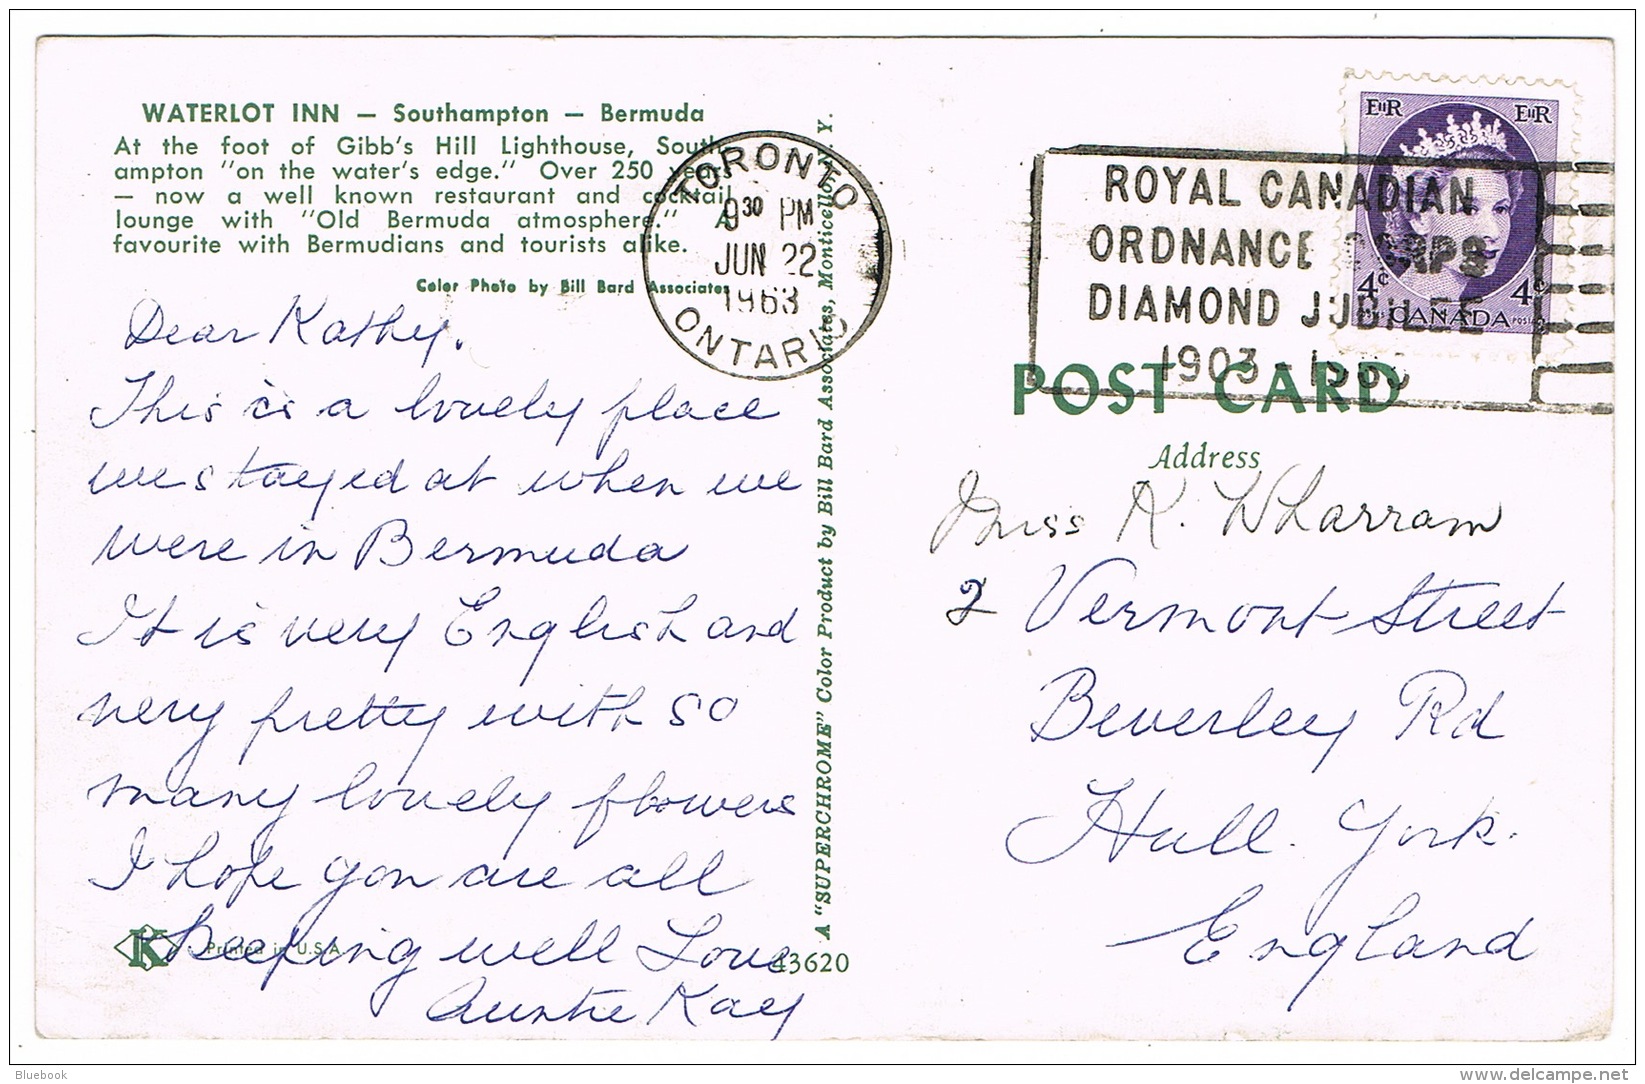 WATERLOT INN — Southampton — Bermuda
At the foot of Gibb's Hill Lighthouse, South-
ampton "on the water's edge." Over 250 years
— now a well known restaurant and cocktail
lounge with "Old Bermuda atmosphere." A
favourite with Bermudians and tourists alike.
Color Photo by Bill Bard Associates
Dear Kathy.
This is a lovely place
we stayed at when we
were in Bermuda
It is very English and
very pretty with so
many lovely flowers
I hope you are all
keeping well Love
Auntie Kay
K
Printed in U.S.A.
43620
A "SUPERCHROME" Color Product by Bill Bard Associates, Monticello, N. Y.
TORONTO
9 30 PM
JUN 22
1963
ONTARIO
ROYAL CANADIAN
ORDNANCE CORPS
DIAMOND JUBILEE
1903 - 1963
EIIR EIIR
4¢ 4¢
CANADA
POST CARD
Address
Miss K. Wharram
2 Vermont Street
Beverley Rd
Hull. York.
England
Bluebook
www.delcampe.net